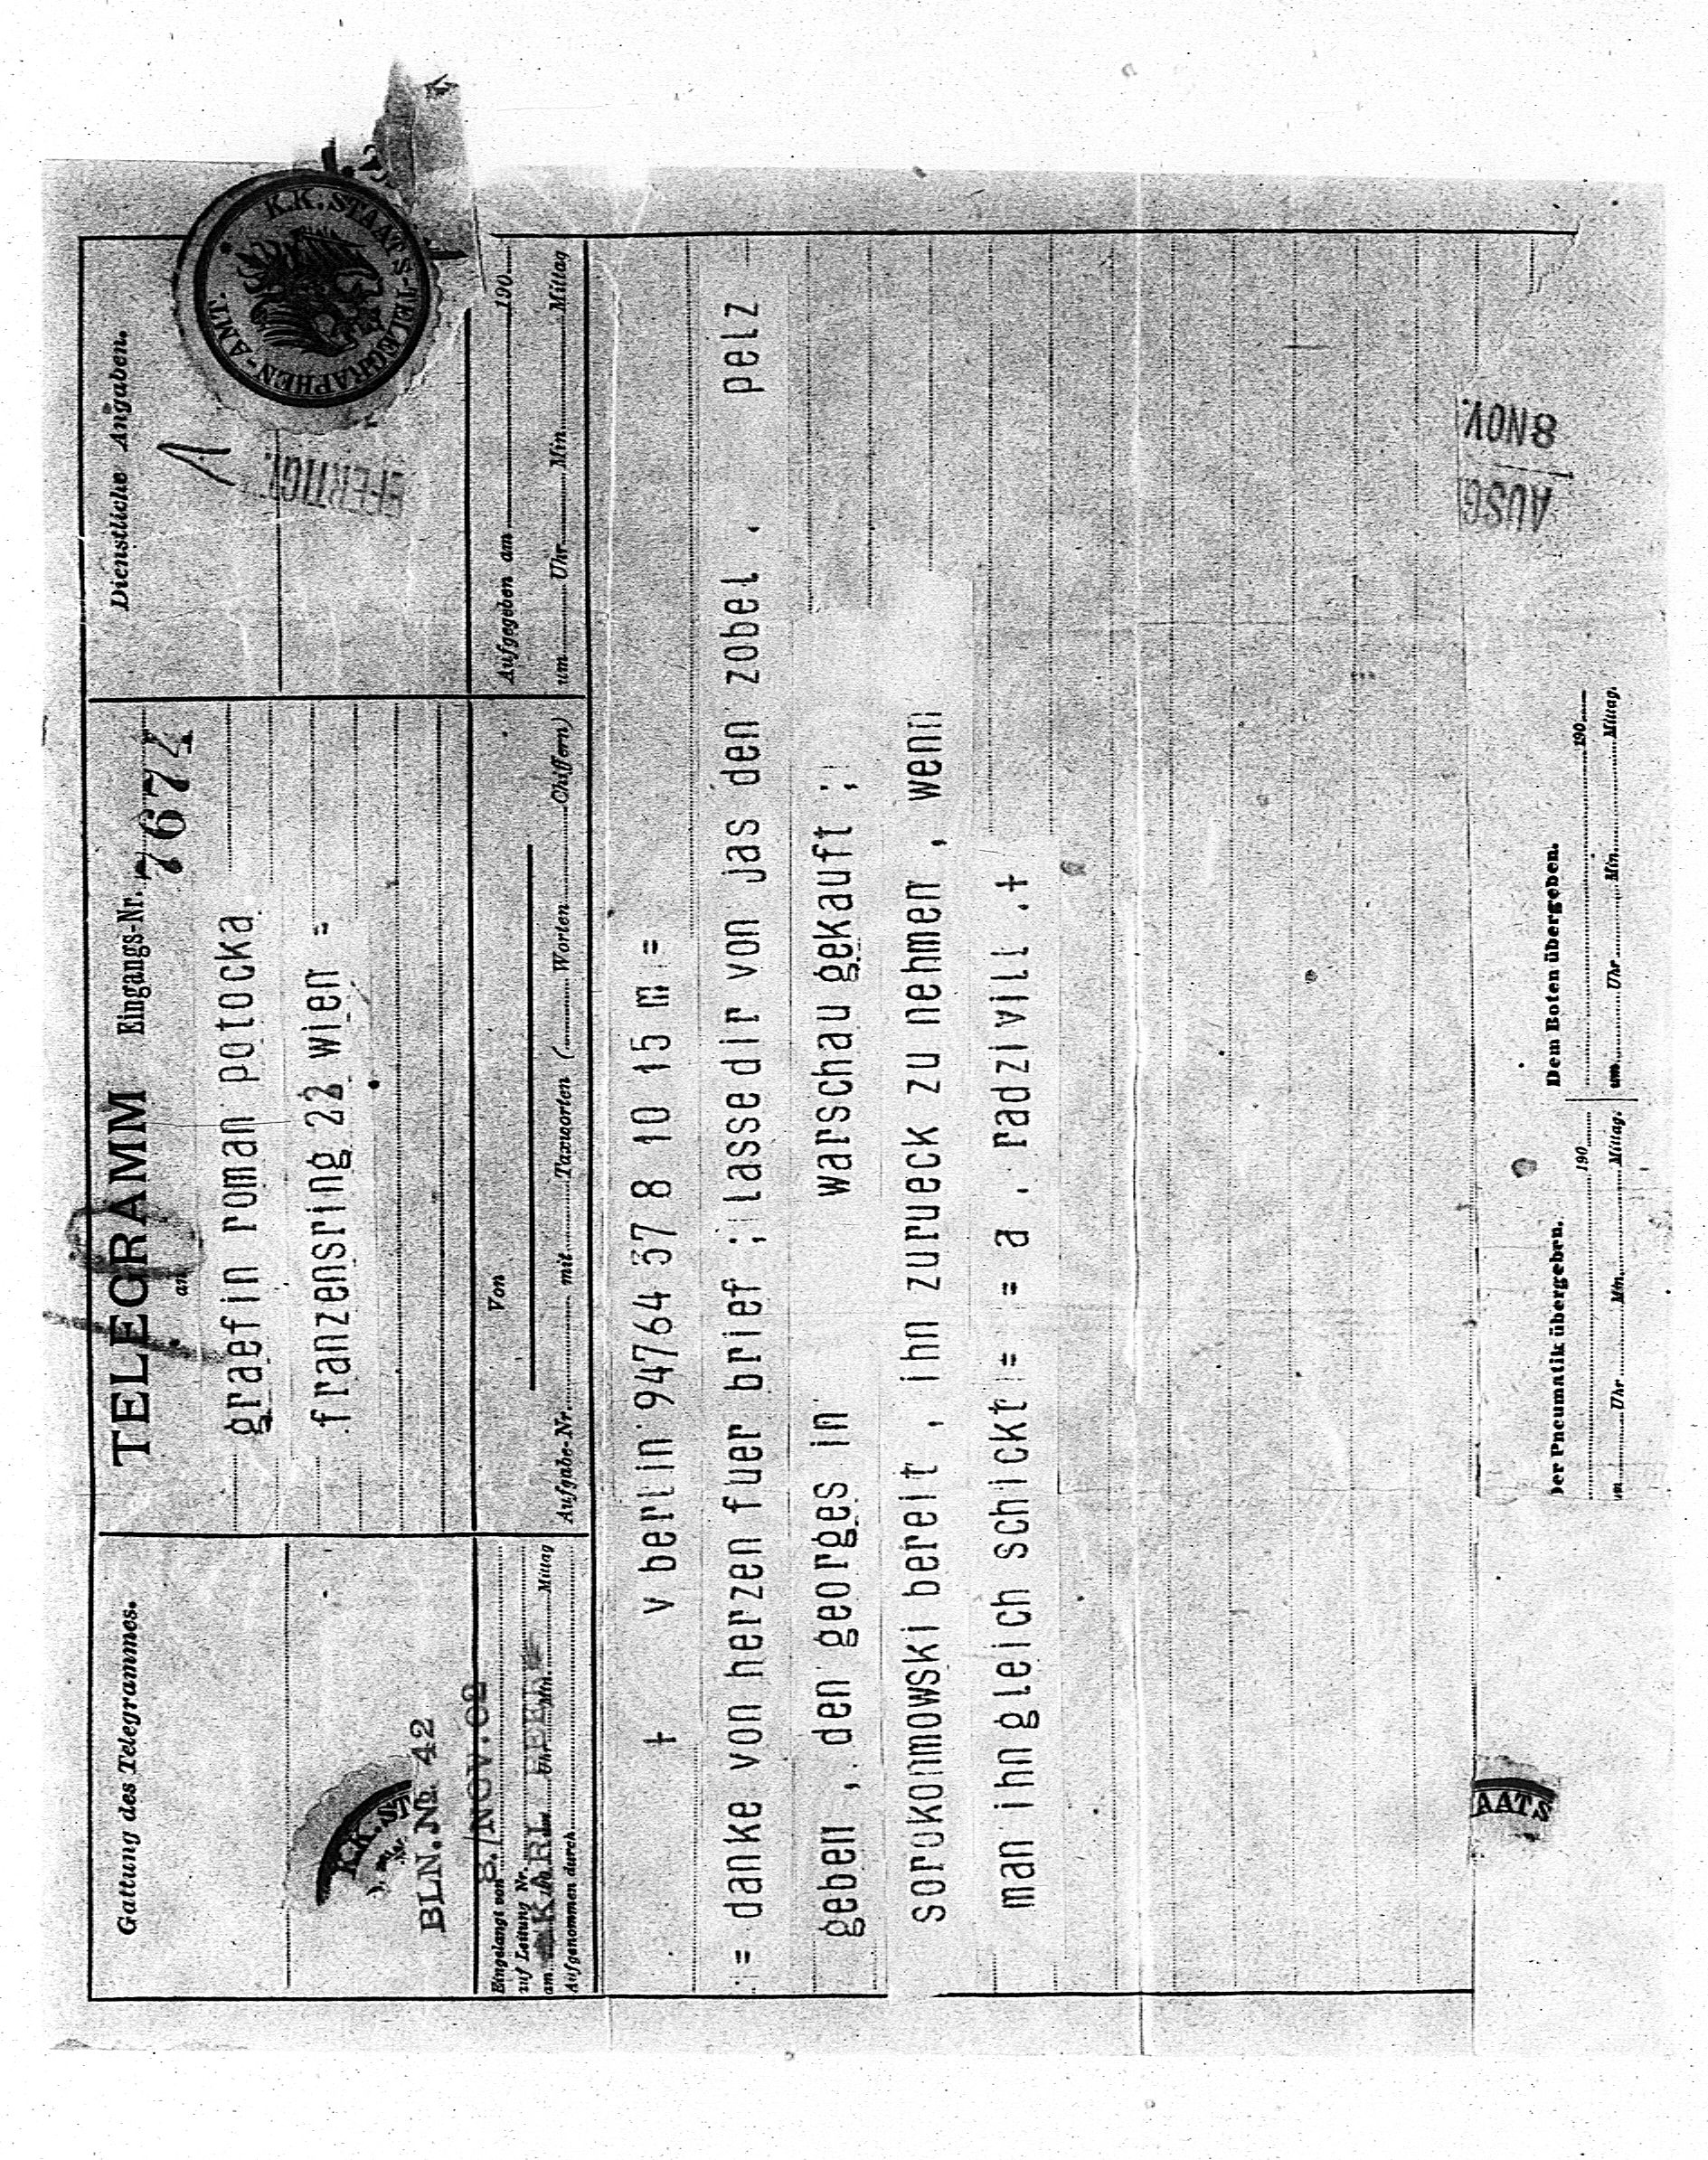 Gattung des Telegrammes.
TELEGRAMM Eingangs-Nr. 7674
an
Dienstliche Angaben.
graefin roman potocka
franzensring 22 wien =
K.K. STAATS-TELEGRAPHEN-AMT.
EFERTIGT
K.K. ST
BLN. No 42
8./NOV.02
Eingelangt von
auf Leitung Nr.
am 190 um Uhr Min. Mittag
KARL
Aufgenommen durch
Von
Aufgabe-Nr. mit Taxworten ( Worten Chiffern)
Aufgegeben am 190
um Uhr Min. Mittag
+ v berlin 94764 37 8 10 15 m =
= danke von herzen fuer brief ; lasse dir von jas den zobel . pelz
geben , den georges in warschau gekauft ;
sorokonmowski bereit , ihn zurueck zu nehmen , wenn
man ihn gleich schickt = = a . radzivill .+
AUSG 8 NOV.
AATS
Der Pneumatik übergeben.
190
um Uhr Min. Mittag.
Dem Boten übergeben.
190
um Uhr Min. Mittag.